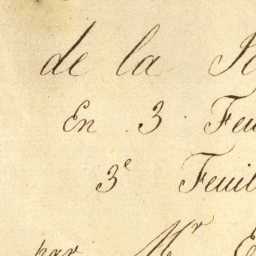 de la
En 3
3e Feuil
par Mr